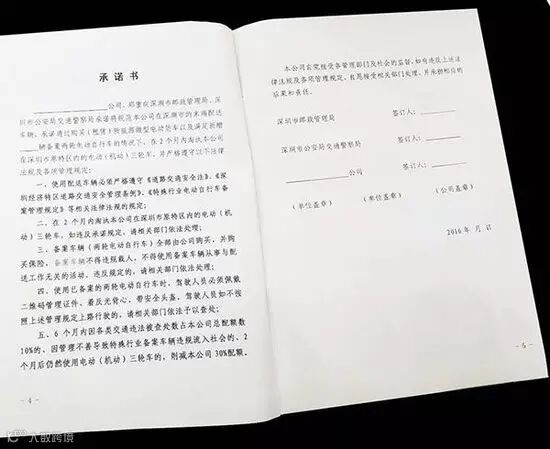 承诺书
公司,郑重向深圳市邮政管理局、深
圳市公安局交通警察局承诺将规范本公司在深圳市的末端配送
车辆,承诺通过购买(租赁)新能源微型电动货车以及满足新增
辆备案两轮电动自行车的情况下,在2个月内淘汰本公司
在深圳市原特区内的电动(机动)三轮车,并严格遵守以下法律
法规及各项管理规定:
一、使用配送车辆必须严格遵守《道路交通安全法》、《深
圳经济特区道路交通安全管理条例》、《特殊行业电动自行车备
案管理规定》等相关法律法规的规定;
二、在2个月内淘汰本公司在深圳市原特区内的电动(机
动)三轮车,如违反承诺规定,请相关部门依法处理;
三、备案车辆(两轮电动自行车)全部由公司购买,并购
买保险,备案车辆不得违规载人,不得使用备案车辆从事与配
送工作无关的活动,违反规定的,请相关部门依法处理;
四、使用已备案的两轮电动自行车时,驾驶人员必须佩戴
二维码管理证件、着反光背心、带安全头盔,驾驶人员如不按
照上述管理规定上路行驶的,请相关部门依法予以查处;
五、6个月内因各类交通违法被查处数占本公司总配额数
10%的,因管理不善导致特殊行业备案车辆违规流入社会的、2
个月后仍然使用电动(机动)三轮车的,削减本公司30%配额。
- 4 -
本公司自觉接受各管理部门及社会的监督,如有违反上述法
律法规及各项管理规定,自愿接受相关部门处理,并承担相应的
后果和责任。
深圳市邮政管理局 签订人:
深圳市公安局交通警察局 签订人:
公司 签订人:
(单位盖章) (单位盖章) (公司盖章)
2016年 月 日
- 5 -
大数跨境